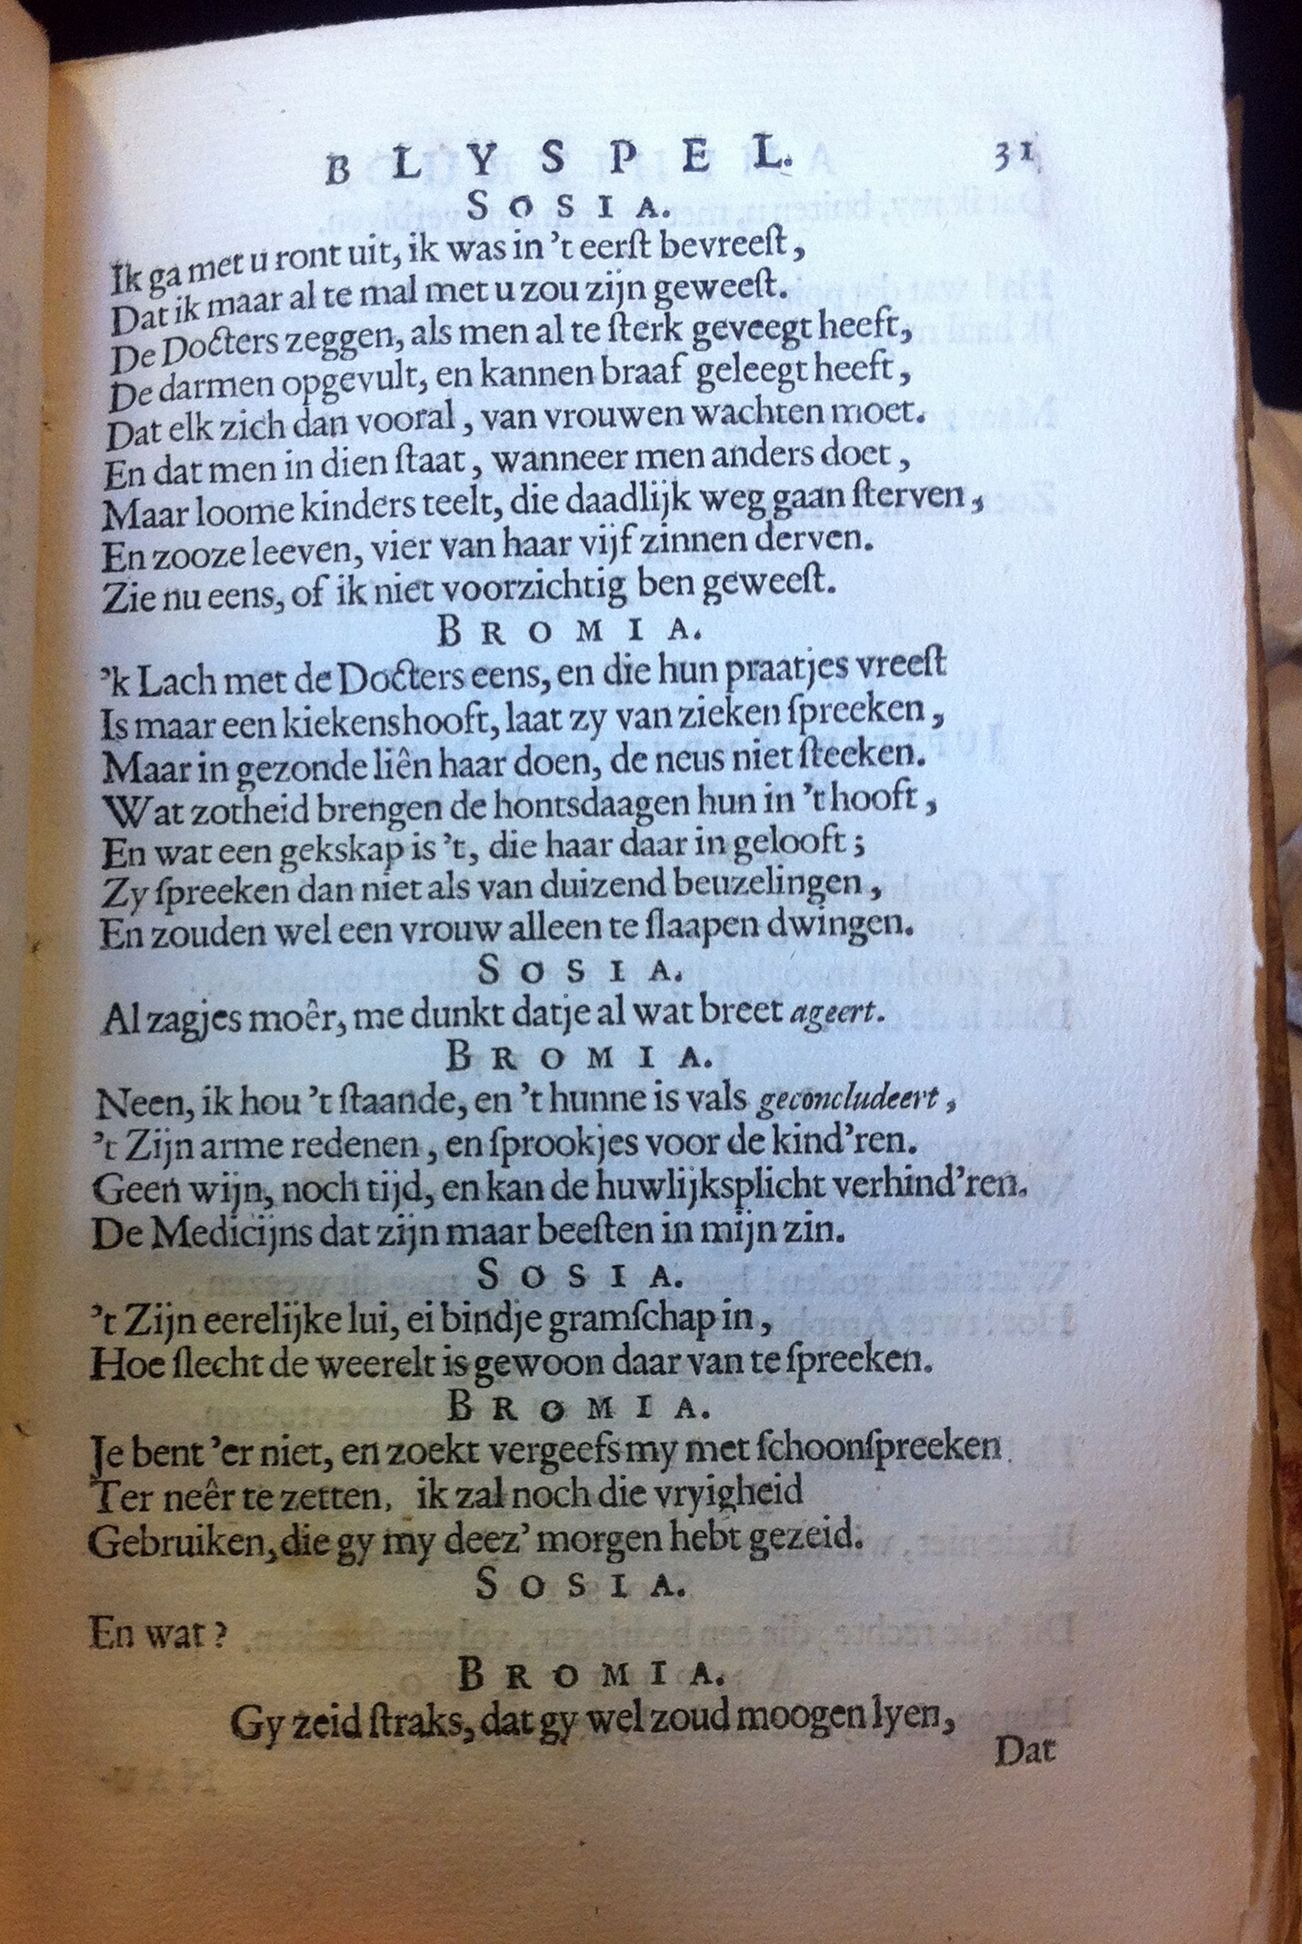 BLYSPEL. 31
SOSIA.
Ik ga met u ront uit, ik was in 't eerſt bevreeſt,
Dat ik maar al te mal met u zou zijn geweeſt.
De Docters zeggen, als men al te ſterk geveegt heeft,
De darmen opgevult, en kannen braaf geleegt heeft,
Dat elk zich dan vooral, van vrouwen wachten moet.
En dat men in dien ſtaat, wanneer men anders doet,
Maar loome kinders teelt, die daadlijk weg gaan ſterven,
En zooze leeven, vier van haar vijf zinnen derven.
Zie nu eens, of ik niet voorzichtig ben geweeſt.
BROMIA.
'k Lach met de Docters eens, en die hun praatjes vreeſt
Is maar een kiekenshooft, laat zy van zieken ſpreeken,
Maar in gezonde liên haar doen, de neus niet ſteeken.
Wat zotheid brengen de hontsdaagen hun in 't hooft,
En wat een gekskap is 't, die haar daar in gelooft;
Zy ſpreeken dan niet als van duizend beuzelingen,
En zouden wel een vrouw alleen te ſlaapen dwingen.
SOSIA.
Al zagjes moêr, me dunkt datje al wat breet ageert.
BROMIA.
Neen, ik hou 't ſtaande, en 't hunne is vals geconcludeert,
't Zijn arme redenen, en ſprookjes voor de kind'ren.
Geen wijn, noch tijd, en kan de huwlijksplicht verhind'ren.
De Medicijns dat zijn maar beeſten in mijn zin.
SOSIA.
't Zijn eerelijke lui, ei bindje gramſchap in,
Hoe ſlecht de weerelt is gewoon daar van te ſpreeken.
BROMIA.
Je bent 'er niet, en zoekt vergeefs my met ſchoonſpreeken
Ter neêr te zetten, ik zal noch die vryigheid
Gebruiken, die gy my deez' morgen hebt gezeid.
SOSIA.
En wat?
BROMIA.
Gy zeid ſtraks, dat gy wel zoud moogen lyen,
Dat